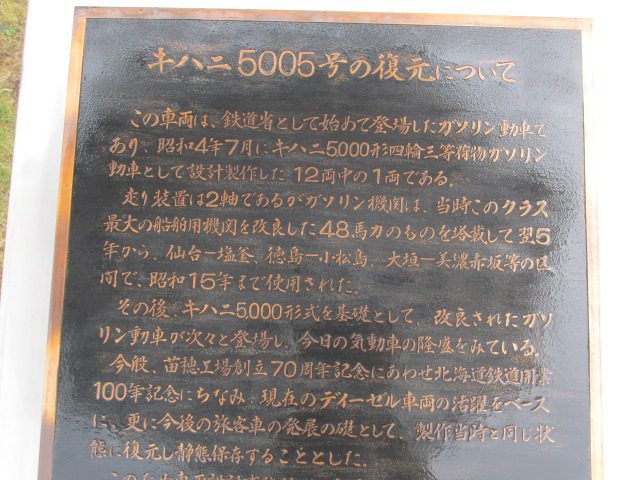 キハニ5005号の復元について
この車両は、鉄道省として始めて登場したガソリン動車で
あり、昭和4年7月にキハニ5000形四輪三等荷物ガソリン
動車として設計製作した12両中の1両である。
走り装置は2軸であるがガソリン機関は、当時このクラス
最大の船舶用機関を改良した48馬力のものを塔載して翌5
年から、仙台−塩釜、徳島−小松島、大垣−美濃赤坂等の区
間で、昭和15年まで使用された。
その後、キハニ5000形式を基礎として、改良されたガソ
リン動車が次々と登場し、今日の気動車の隆盛をみている。
今般、苗穂工場創立70周年記念にあわせ北海道鉄道開業
100年記念にちなみ、現在のディーゼル車両の活躍をベース
に、更に今後の旅客車の発展の礎として、製作当時と同じ状
態に復元し静態保存することとした。
このため車両